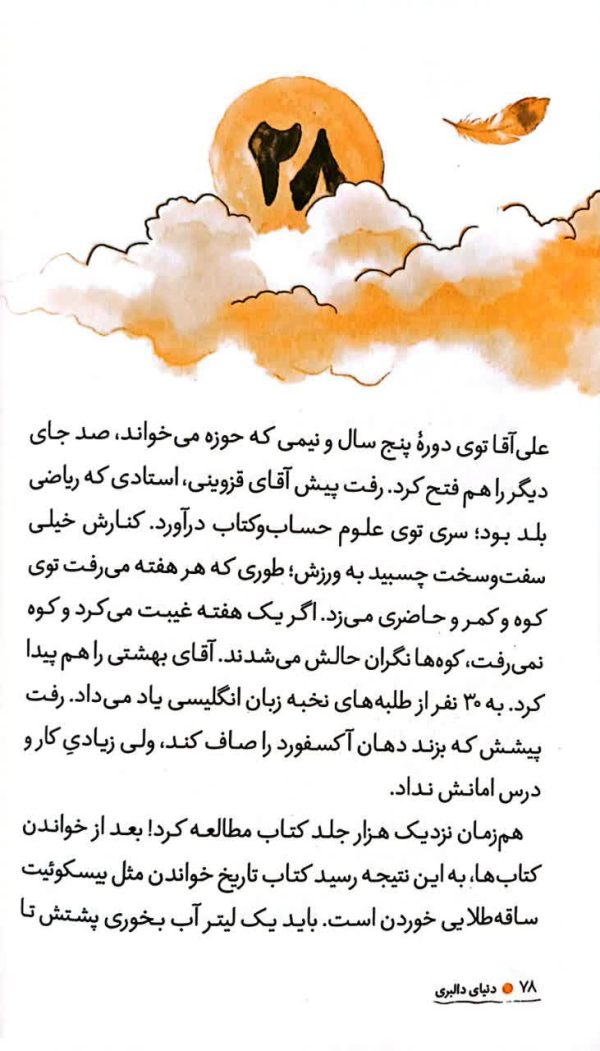 ۲۸
علی‌آقا توی دورهٔ پنج سال و نیمی که حوزه می‌خواند، صد جای
دیگر را هم فتح کرد. رفت پیش آقای قزوینی، استادی که ریاضی
بلد بود؛ سری توی علوم حساب‌وکتاب درآورد. کنارش خیلی
سفت‌وسخت چسبید به ورزش؛ طوری که هر هفته می‌رفت توی
کوه و کمر و حاضری می‌زد. اگر یک هفته غیبت می‌کرد و کوه
نمی‌رفت، کوه‌ها نگران حالش می‌شدند. آقای بهشتی را هم پیدا
کرد. به ۳۰ نفر از طلبه‌های نخبه زبان انگلیسی یاد می‌داد. رفت
پیشش که بزند دهان آکسفورد را صاف کند، ولی زیادیِ کار و
درس امانش نداد.
هم‌زمان نزدیک هزار جلد کتاب مطالعه کرد! بعد از خواندن
کتاب‌ها، به این نتیجه رسید کتاب تاریخ خواندن مثل بیسکوئیت
ساقه‌طلایی خوردن است. باید یک لیتر آب بخوری پشتش تا
۷۸ ● دنیای دالبری